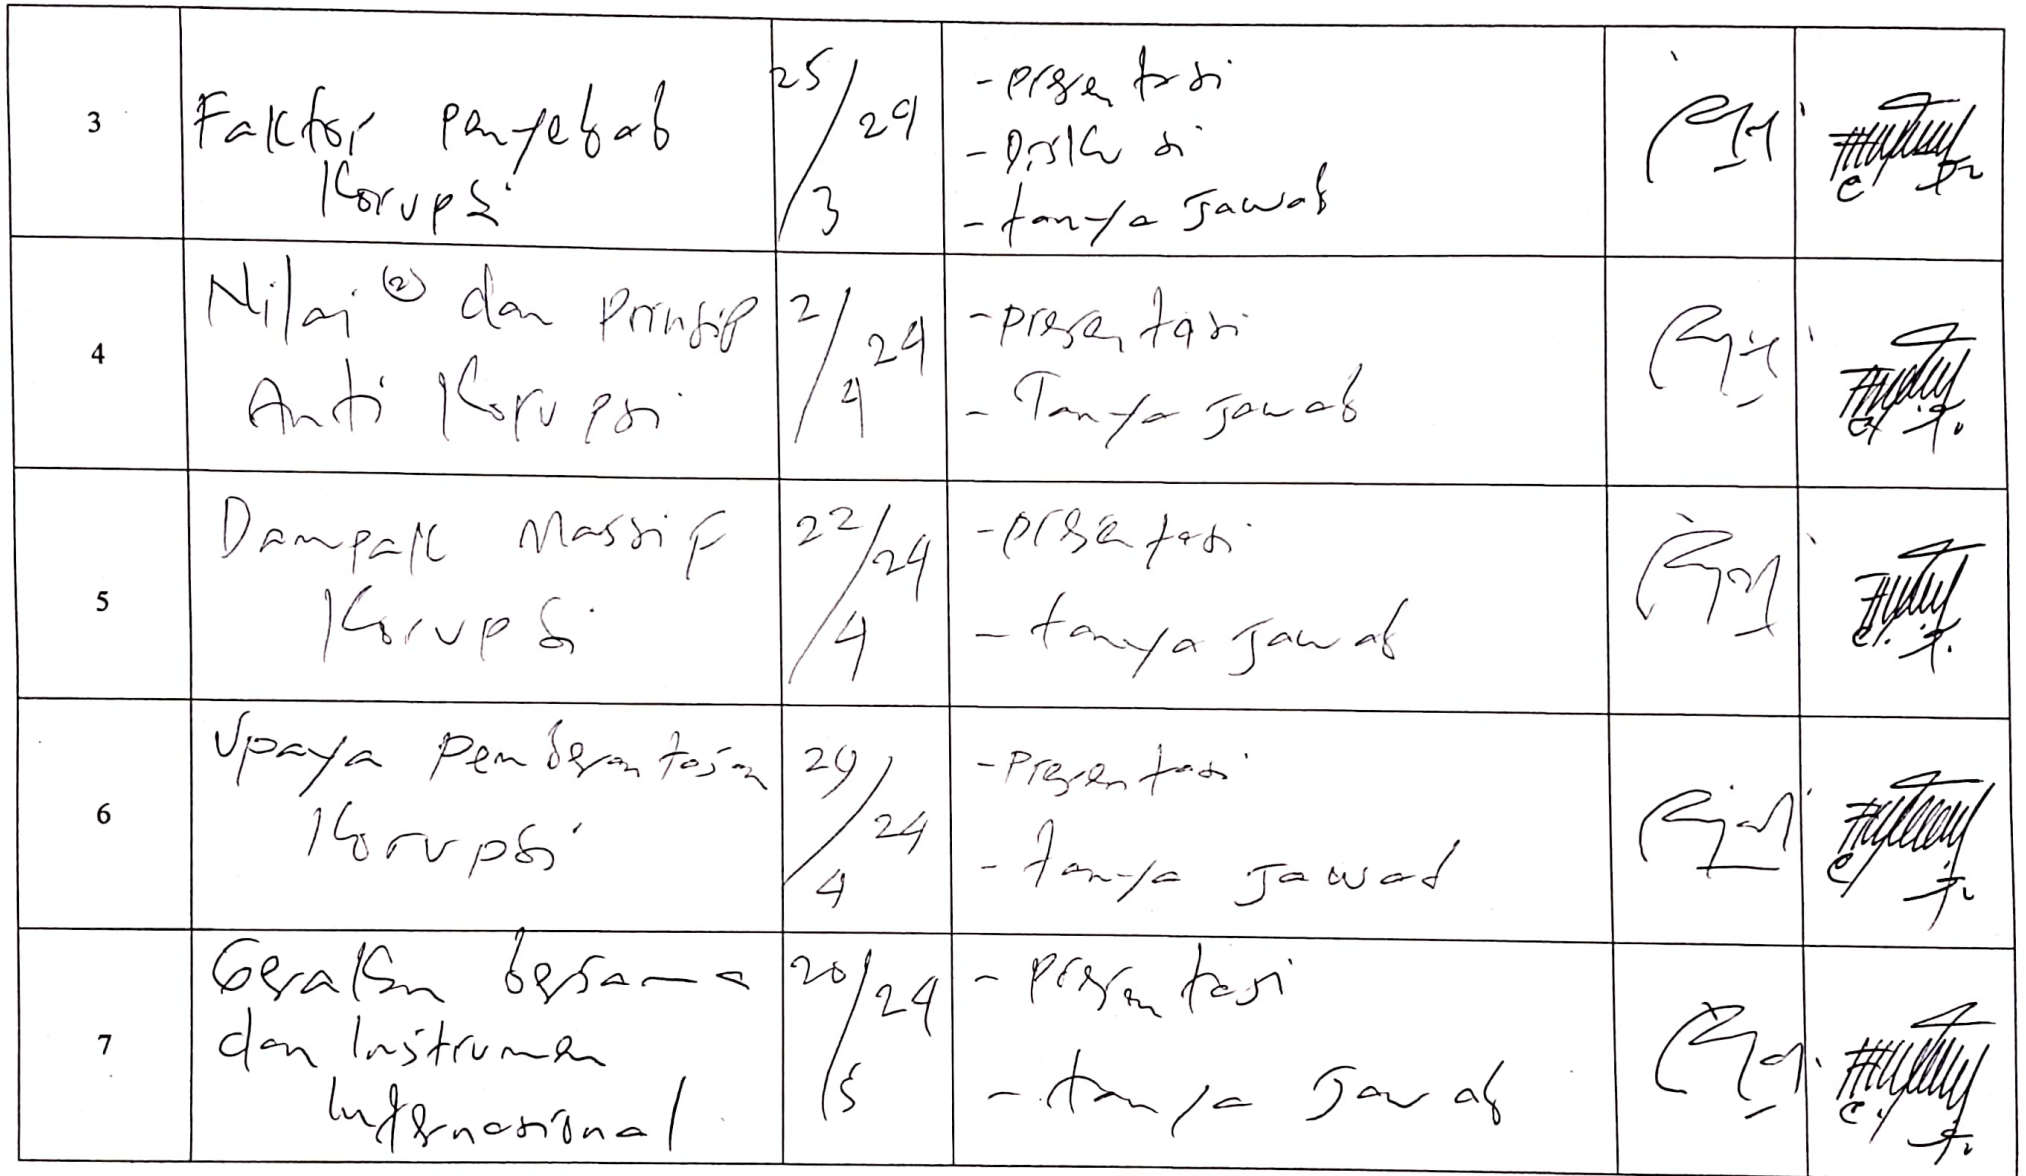 3
Faktor penyebab
Korupsi
25/3 24
- presentasi
- Diskusi
- tanya Jawab
4
Nilai (2) dan Prinsip
Anti Korupsi
2/4 24
- presentasi
- Tanya Jawab
5
Dampak Massif
Korupsi
22/4 24
- presentasi
- tanya Jawab
6
Upaya Pemberantasan
Korupsi
29/4 24
- Presentasi
- tanya Jawab
7
Gerakan bersama
dan Instrumen
Internasional
20/5 24
- presentasi
- tanya Jawab